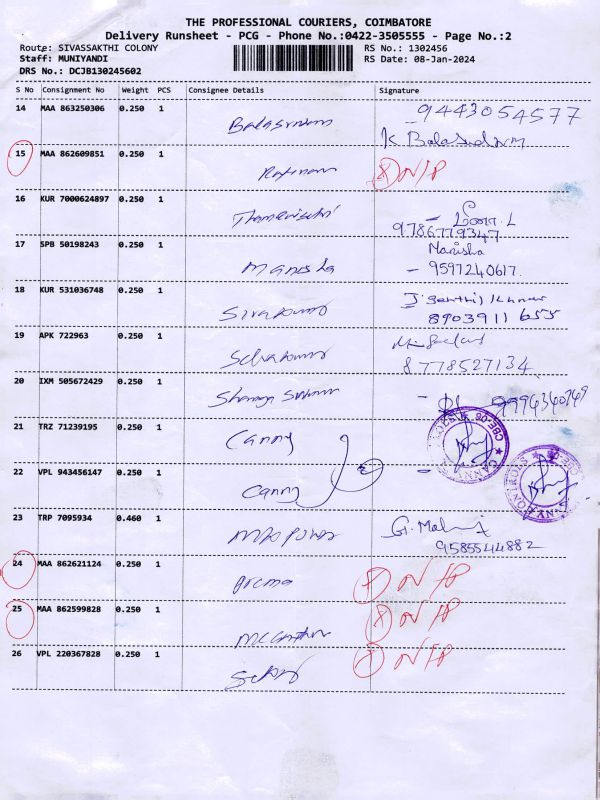 THE PROFESSIONAL COURIERS, COIMBATORE
Delivery Runsheet - PCG - Phone No.:0422-3505555 - Page No.:2
Route: SIVASSAKTHI COLONY RS No.: 1302456
Staff: MUNIYANDI RS Date: 08-Jan-2024
DRS No.: DCJB130245602
S No Consignment No Weight PCS Consignee Details Signature
14 MAA 863250306 0.250 1 9443054577
K
15 MAA 862609851 0.250 1 N/P
16 KUR 7000624897 0.250 1
9786779347
17 SPB 50198243 0.250 1 Manisha Manisha
- 9597240617.
18 KUR 531036748 0.250 1 J. Senthil Kumar
8903911655
19 APK 722963 0.250 1 Selvakumar
8778527134
20 IXM 505672429 0.250 1
21 TRZ 71239195 0.250 1 Canny
22 VPL 943456147 0.250 1 Canny
23 TRP 7095934 0.460 1 G.
9585544882
24 MAA 862621124 0.250 1 N/P
25 MAA 862599828 0.250 1 N/P
26 VPL 220367828 0.250 1 N/P